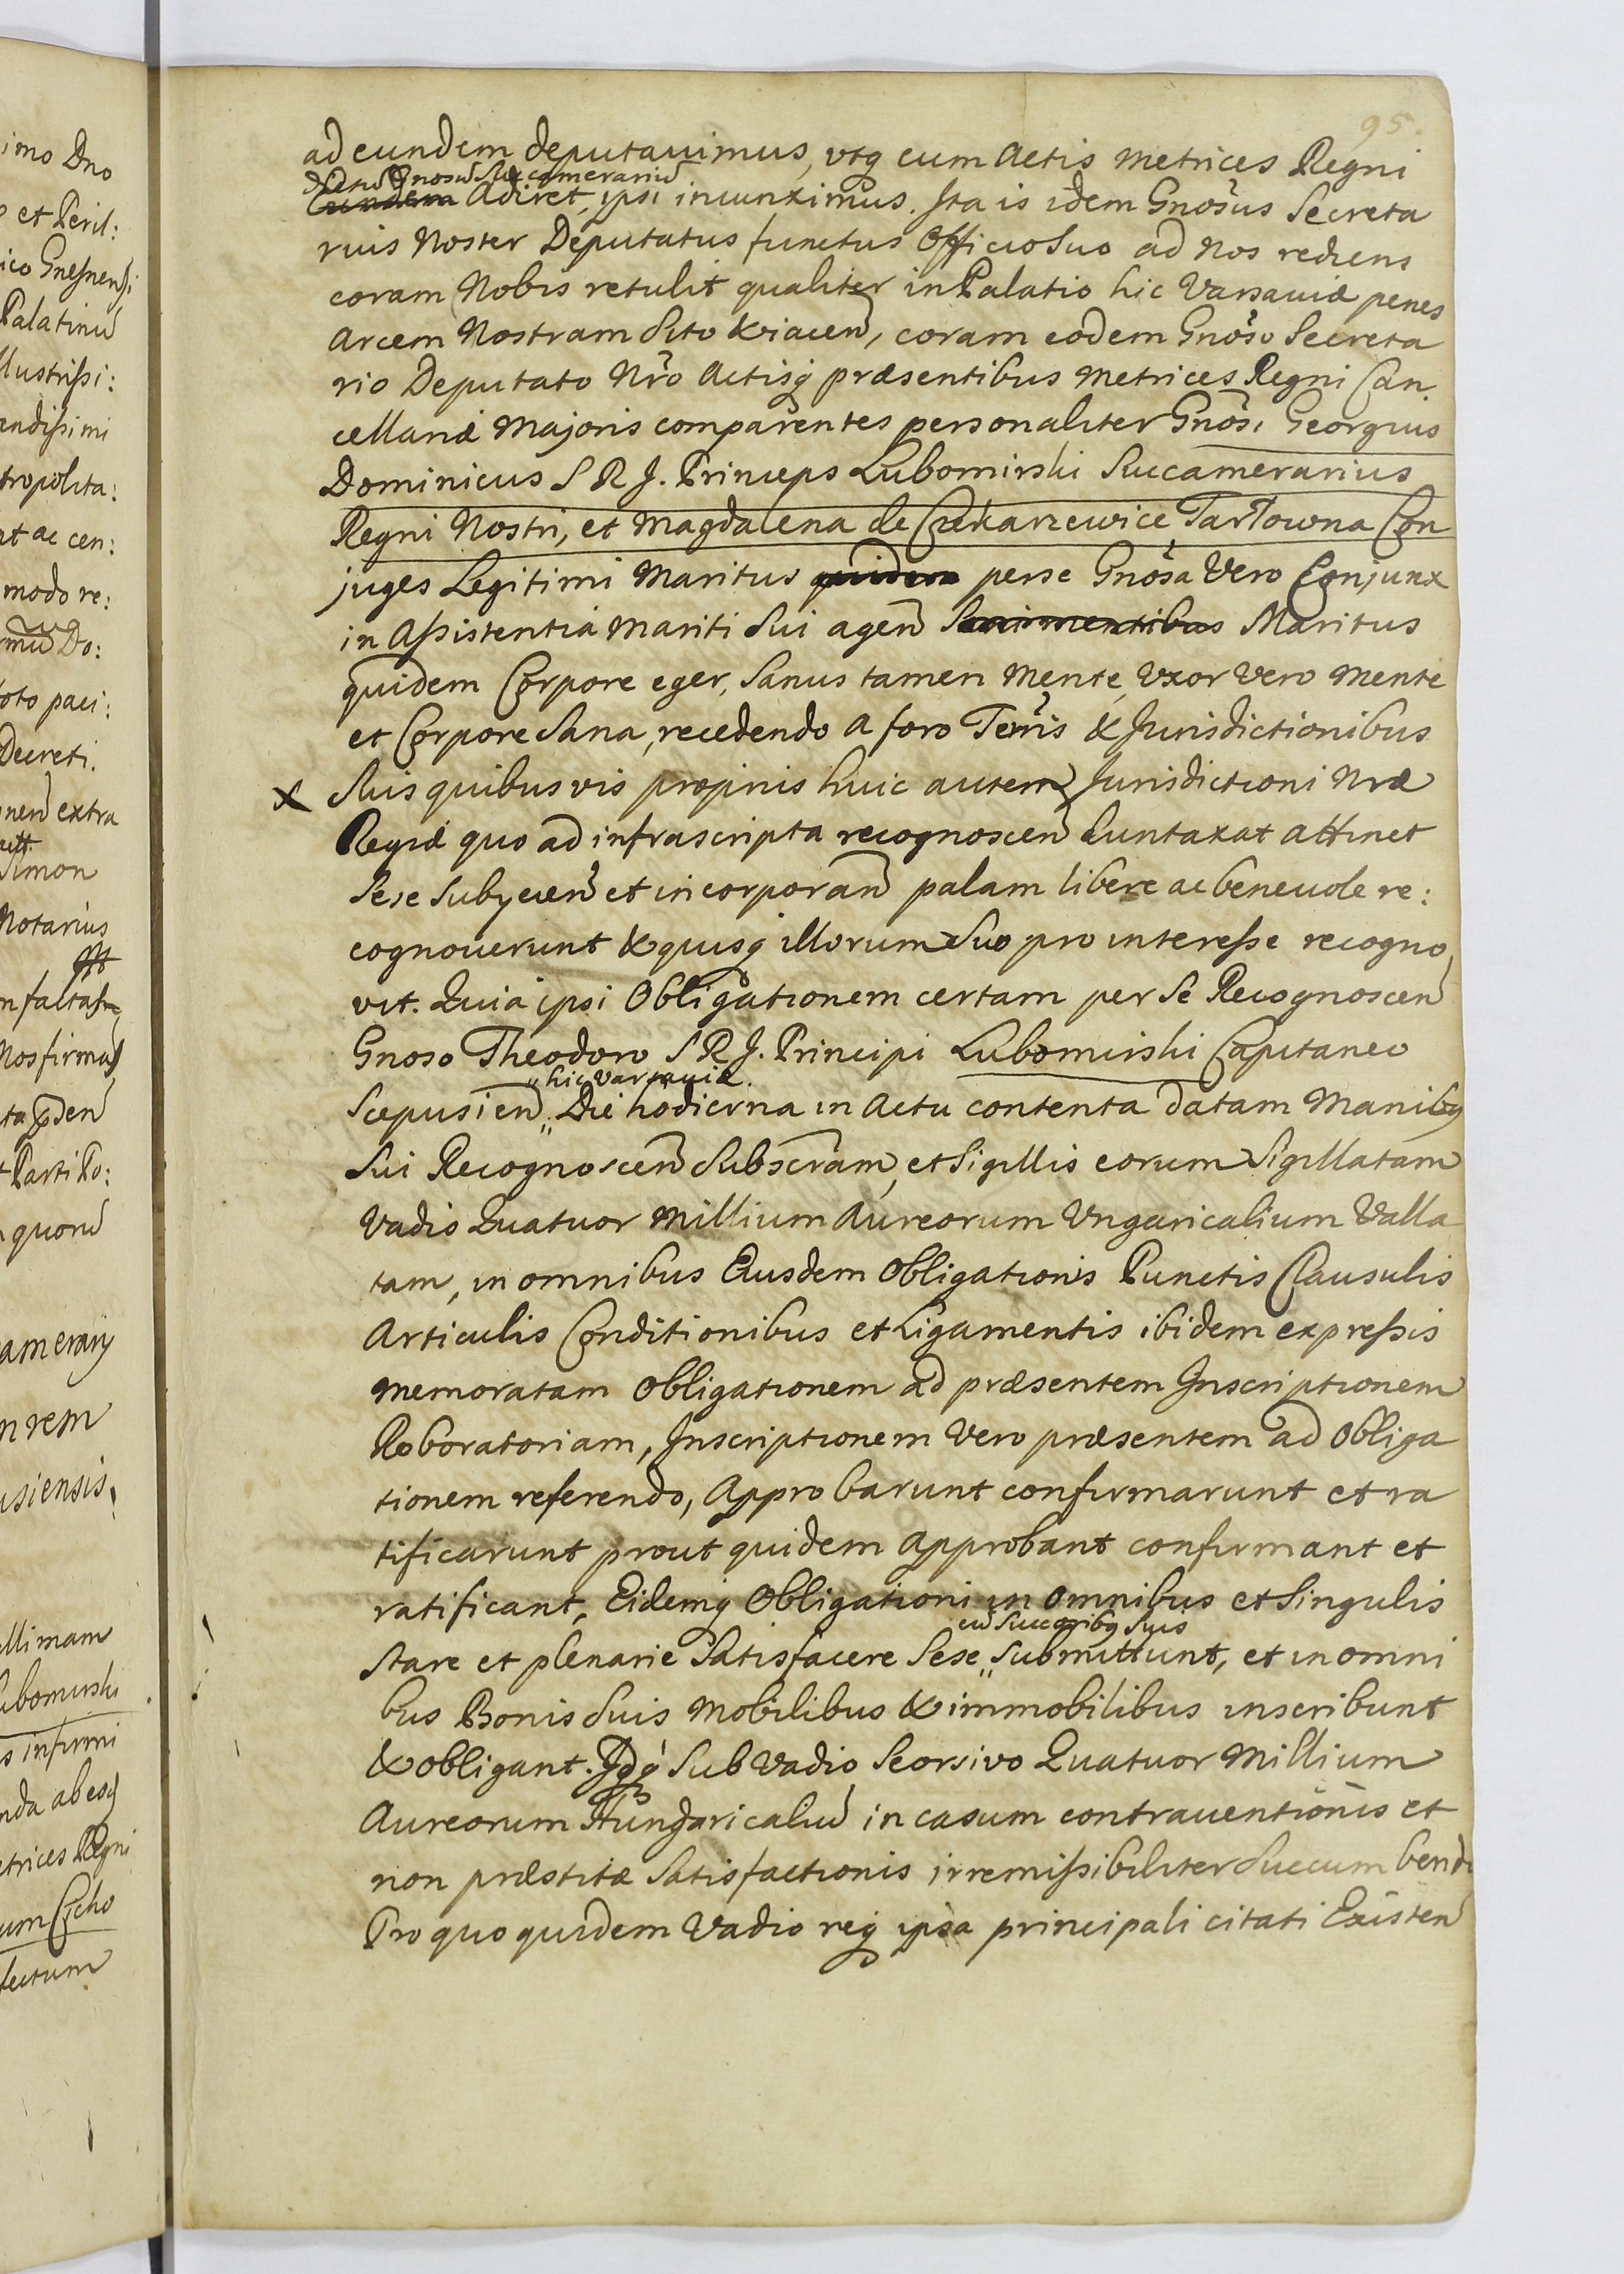 imo Dno
et Peril:
ico Gnesnensi
Palatinũ
llustrissi:
endissimi
tropolita:
at ac cen:
modo re:
Do:
oto paci:
Decreti.
nen extra
Simon
Notarius
Nosfirmas
Parti Po:
quorũ
amerarij
n rem
usiensis,
llimam
ubomirski
s infirmi
nda ab esq
etrices Regni
um Czcho
fectum
95.
ad eundem deputauimus, vtq cum Actis Metrices Regni
dictũ Gnosũ Succamerariũ
Eundem Adiret, ipsi iniunximus. Ita is idem Gnosus Secreta
rius Noster Deputatus functus Officio Suo ad Nos rediens
coram Nobis retulit qualiter in Palatio hic Varsauiæ penes
Arcem Nostram Sito & iacen, coram eodem Gnoso Secreta
rio Deputato Nro Actisq præsentibus Metrices Regni Can
cellariæ Majoris comparentes personaliter Gnosi Georgius
Dominicus S R J. Princeps Lubomirski Succamerarius
Regni Nostri, et Magdalena de Czekarzewice Tarłowna Con
juges Legitimi Maritus quidem perse Gnosa Vero Conjunx
in Assistentia Mariti Sui agen Sanimentibus Maritus
quidem Corpore eger, Sanus tamen Mente, Uxor Vero Mente
et Corpore Sana, recedendo a foro Terris & Jurisdictionibus
x Suis quibusvis proprijs huic autem Jurisdictioni Nræ
Regiæ quo ad infrascripta recognoscen duntaxat attinet
Sese Subycien et incorporan palam libere ac beneuole re:
cognouerunt & quisq illorum Suo pro interesse recogno
vit. Quia ipsi Obligationem certam per Se Recognoscen
Gnoso Theodoro S R J. Principi Lubomirski Capitaneo
„hic Varsauiæ.
Scepusien „ Die hodierna in Actu contenta datam Manibq
Sui Recognoscen Subscram, et Sigillis eorum Sigillatam
Vadio Quatuor Millium Aureorum Vngaricalium Valla
tam, in omnibus Eiusdem Obligationis Punctis Clausulis
Articulis Conditionibus et Ligamentis ibidem expressis
memoratam Obligationem ad præsentem Inscriptionem
Roboratoriam, Inscriptionem Vero præsentem ad Obliga
tionem referendo, Approbarunt confirmarunt et ra
tificarunt prout quidem Approbant confirmant et
ratificant, Eidemq Obligationi in omnibus et Singulis
cũ Succoribq Suis
Stare et plenarie Satisfacere Sese „ Submittunt, et in omni
bus Bonis Suis Mobilibus & immobilibus inscribunt
& obligant. Idq Sub Vadio Seorsivo Quatuor Millium
Aureorum Hungaricaliũ in casum contrauentionis et
non præstitæ Satisfactionis irremissibiliter Succumbendi
Pro quo quidem Vadio req ipsa principali citati Existen